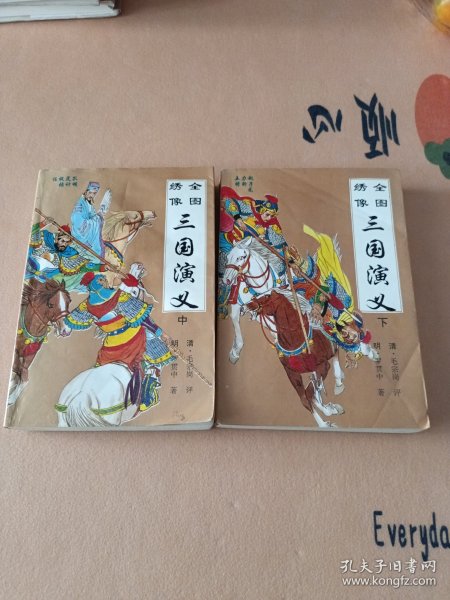 顺心
全图
绣像
三国演义
中
清·毛宗岗 评
明·罗贯中 著
赵子龙
力斩
五将
全图
绣像
三国演义
下
清·毛宗岗 评
明·罗贯中 著
Everyda
孔夫子旧书网
www.kongfz.com